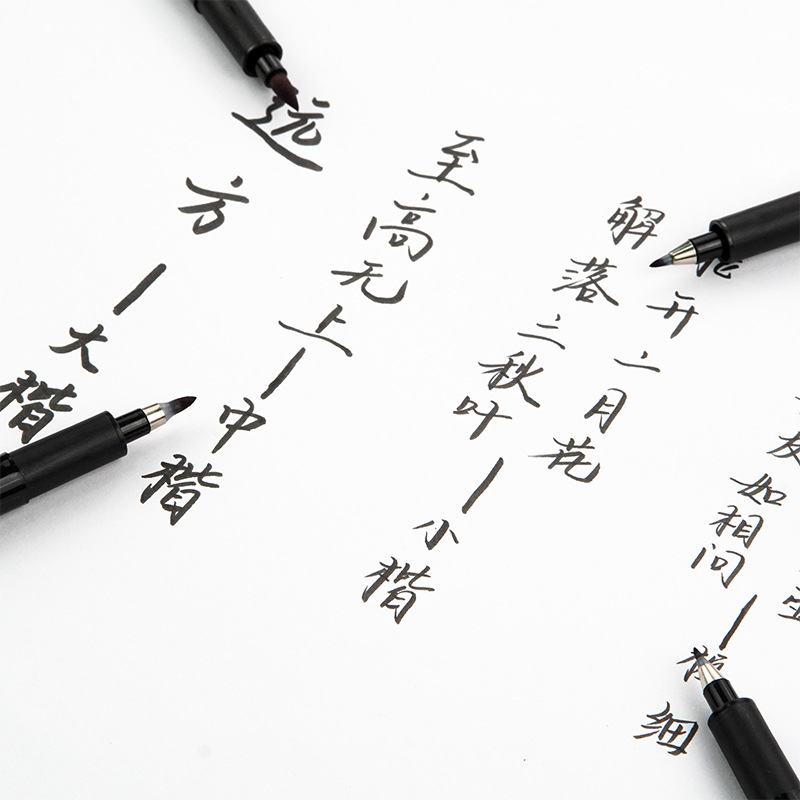 远方—大楷
至高无上—中楷
解落三秋叶
开二月花
—小楷
友如相问
—极细